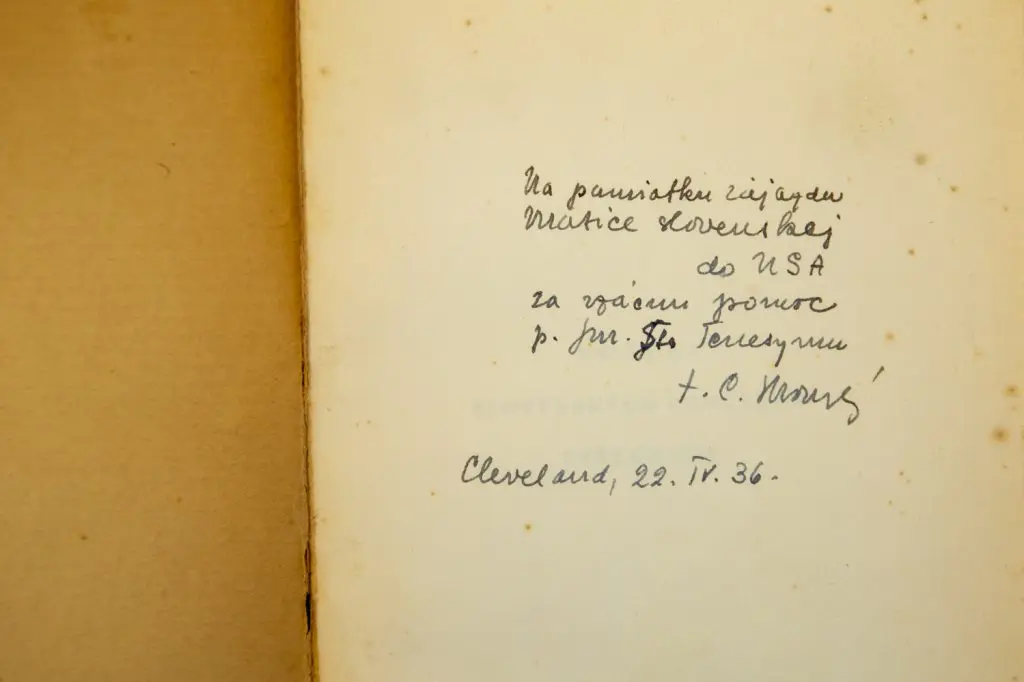 Na pamiatku zájazdu
Matice slovenskej
do USA
za vzácnu pomoc
p. Jm. Tenesymu
J. C. Hronský
Cleveland, 22. IV. 36.